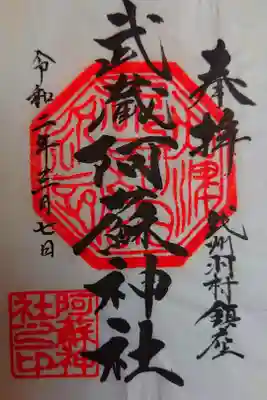 奉拝
武州羽村鎮座
武蔵阿蘇神社
令和二年十二月七日
阿蘇神
社之印